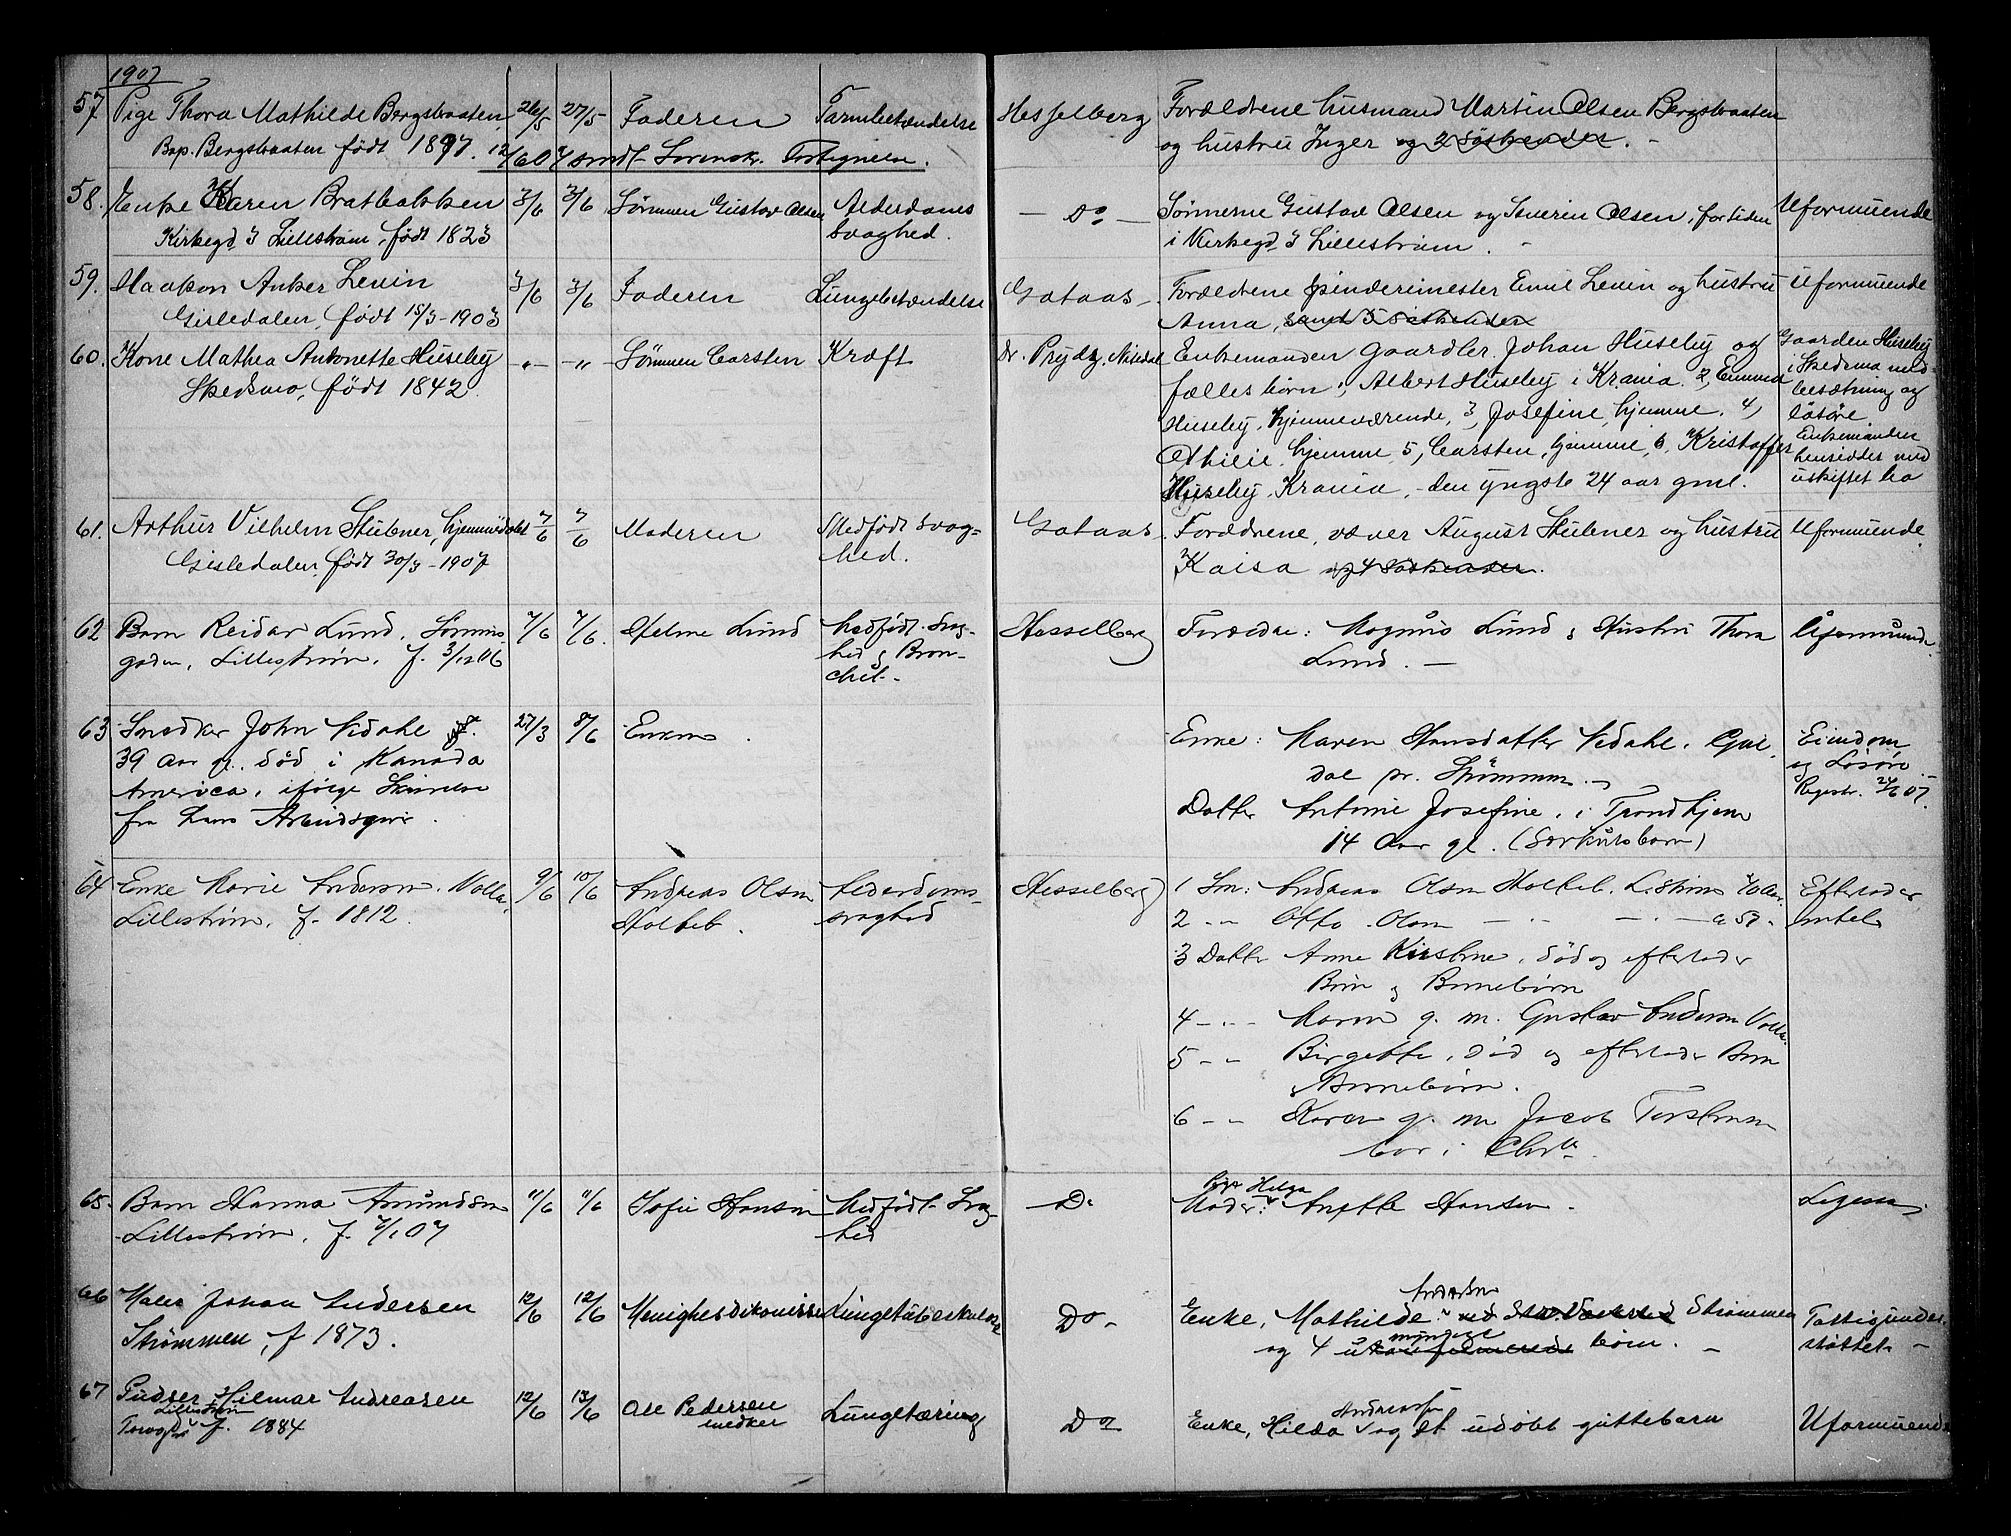 1907
57 Pige Thora Mathilde Bergsbraaten 26/5 27/5 Faderen Tarmbetændelse Hesselberg Forældrene husmand Martin Olsen Bergsbraaten
Bop. Bergsbraaten født 1897. 12/6 07 sendt Sorenskr. Fortegnelse. og hustru Inger og 2 söskende. -
58. Enke Karen Bratbakken 3/6 3/6 Sönnen Gustav Olsen Alderdoms — Do — Sönnerne Gustav Olsen og Severin Olsen, for tiden Uformuende
Kirkegd 3 Lillestrøm, født 1823 svaghed. i Kirkegd 3 Lillestrøm.
59. Haakon Anker Levin 3/6 3/6 Faderen Lungebetændelse Gataas - Forældrene spinderimester Emil Levin og hustru Uformuende
Gisledalen, født 15/3-1903 Anna, samt 3 söskende
60. Kone Mathea Antonette Huseby -"- -"- Sönnen Carsten Kræft Dr. Prydz, Nitedal Enkemanden gaardbr. Johan Huseby og Gaarden Huseby
Skedsmo, født 1842. fælles börn; Albert Huseby i Krania. 2, Emma i Skedsmo med
Huseby, hjemmeværende, 3, Josefine, hjemme. 4, besætning og
lösöre
Othilie, hjemme, 5, Carsten, hjemme, 6, Kristoffer Enkemanden
hensidder med
Huseby, Krania, - den yngste 24 aar gml. uskiftet bo
61. Arthur Vilhelm Stübner, hjemmedöbt 7/6 7/6 Moderen Medfödt svag- Gataas. Forældrene, væver August Stübner og hustru Uformuende.
Gisledalen, født 30/3-1907 hed. Kaisa og 4 söskende.
62 Barn Reidar Lund, 7/6 7/6. Helene Lund Medfødt Svag- Hesselberg Forældre: Magnus Lund & Hustru Thora Uformuende.
gaden, Lillestrøm. f. 3/12 06 hed & Bron- Lund. —
chit.
63 Snedker John Nidahl 27/3 8/6 Enken. Enke: Maren Hansdatter Nidahl, Eiendom
39 Aar gl. død i Kanada dal pr. Strømmen. - og Løsøre.
America, ifølge Skrivelse Datter Antonie Josefine, i Trondhjem Registr. 24/6 07.
fra hans Arbeidsgiver. 14 Aar gl. (Særkulsbarn)
64 Enke Marie Andersen. Volla, 9/6 10/6 Andreas Olsen Alderdoms- Hesselberg 1 Søn: Andreas Olsen Holteb. L.strøm 70 Aar. Efterlader
Lillestrøm, f. 1812. Holteb. svaghed 2 - - Otto Olsen — " — " — 59 - intet
3 Datter Anne Kirstine, død og efterlader
Børn & Børnebørn
4 - - - Maren g. m. Gustav Andersen Volla.
5 - - Birgitte, død og efterlader Børn
& Børnebørn.
6 - - Karen g. m. Jacob Torstensen
bor i Chra.
65. Barn Hanna Amundsen 11/6 11/6 Sofie Hansen Medfødt Svag- — Do Pige Helga
Moder: Anette Hansen. Ingen.
Lillestrøm, f. 7/1 07 hed
66 Maler Johan Andersen 12/6 12/6 Menighedsdiakonisse Lungetuberkulose Do - Enke, Mathilde Andersen Strømmen Fattigunder-
Strømmen, f 1873. og 4 myndige ukonfirmerede börn. - støttet -
67 Pudser Hilmar Andreasen 12/6 13/6 Ole Pedersen Lungetæring Do Enke, Hilda Andreassen og et udöbt guttebarn Uformuende
Lillestrøm
Torvgd f. 1884 snedker